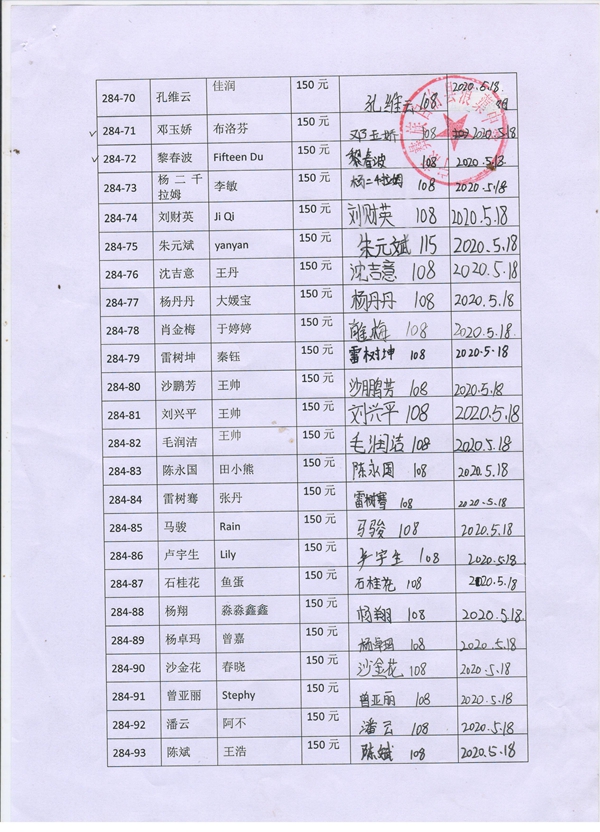 284-70 孔维云 佳润 150 元 孔维云 108 2020.5.18
284-71 邓玉娇 布洛芬 150 元 邓玉娇 108 2020.5.18
284-72 黎春波 Fifteen Du 150 元 黎春波 108 2020.5.18
284-73 杨二千拉姆 李敏 150 元 杨二千拉姆 108 2020.5.18
284-74 刘财英 Ji Qi 150 元 刘财英 108 2020.5.18
284-75 朱元斌 yanyan 150 元 朱元斌 115 2020.5.18
284-76 沈吉意 王丹 150 元 沈吉意 108 2020.5.18
284-77 杨丹丹 大媛宝 150 元 杨丹丹 108 2020.5.18
284-78 肖金梅 于婷婷 150 元 108 2020.5.18
284-79 雷树坤 秦钰 150 元 雷树坤 108 2020.5.18
284-80 沙鹏芳 王帅 150 元 沙鹏芳 108 2020.5.18
284-81 刘兴平 王帅 150 元 刘兴平 108 2020.5.18
284-82 毛润洁 王帅 150 元 毛润洁 108 2020.5.18
284-83 陈永国 田小熊 150 元 陈永国 108 2020.5.18
284-84 雷树骞 张丹 150 元 雷树骞 108 2020.5.18
284-85 马骏 Rain 150 元 马骏 108 2020.5.18
284-86 卢宇生 Lily 150 元 卢宇生 108 2020.5.18
284-87 石桂花 鱼蛋 150 元 石桂花 108 2020.5.18
284-88 杨翔 淼淼鑫鑫 150 元 杨翔 108 2020.5.18
284-89 杨卓玛 曾嘉 150 元 杨卓玛 108 2020.5.18
284-90 沙金花 春晓 150 元 沙金花 108 2020.5.18
284-91 曾亚丽 Stephy 150 元 曾亚丽 108 2020.5.18
284-92 潘云 阿不 150 元 潘云 108 2020.5.18
284-93 陈斌 王浩 150 元 陈斌 108 2020.5.18